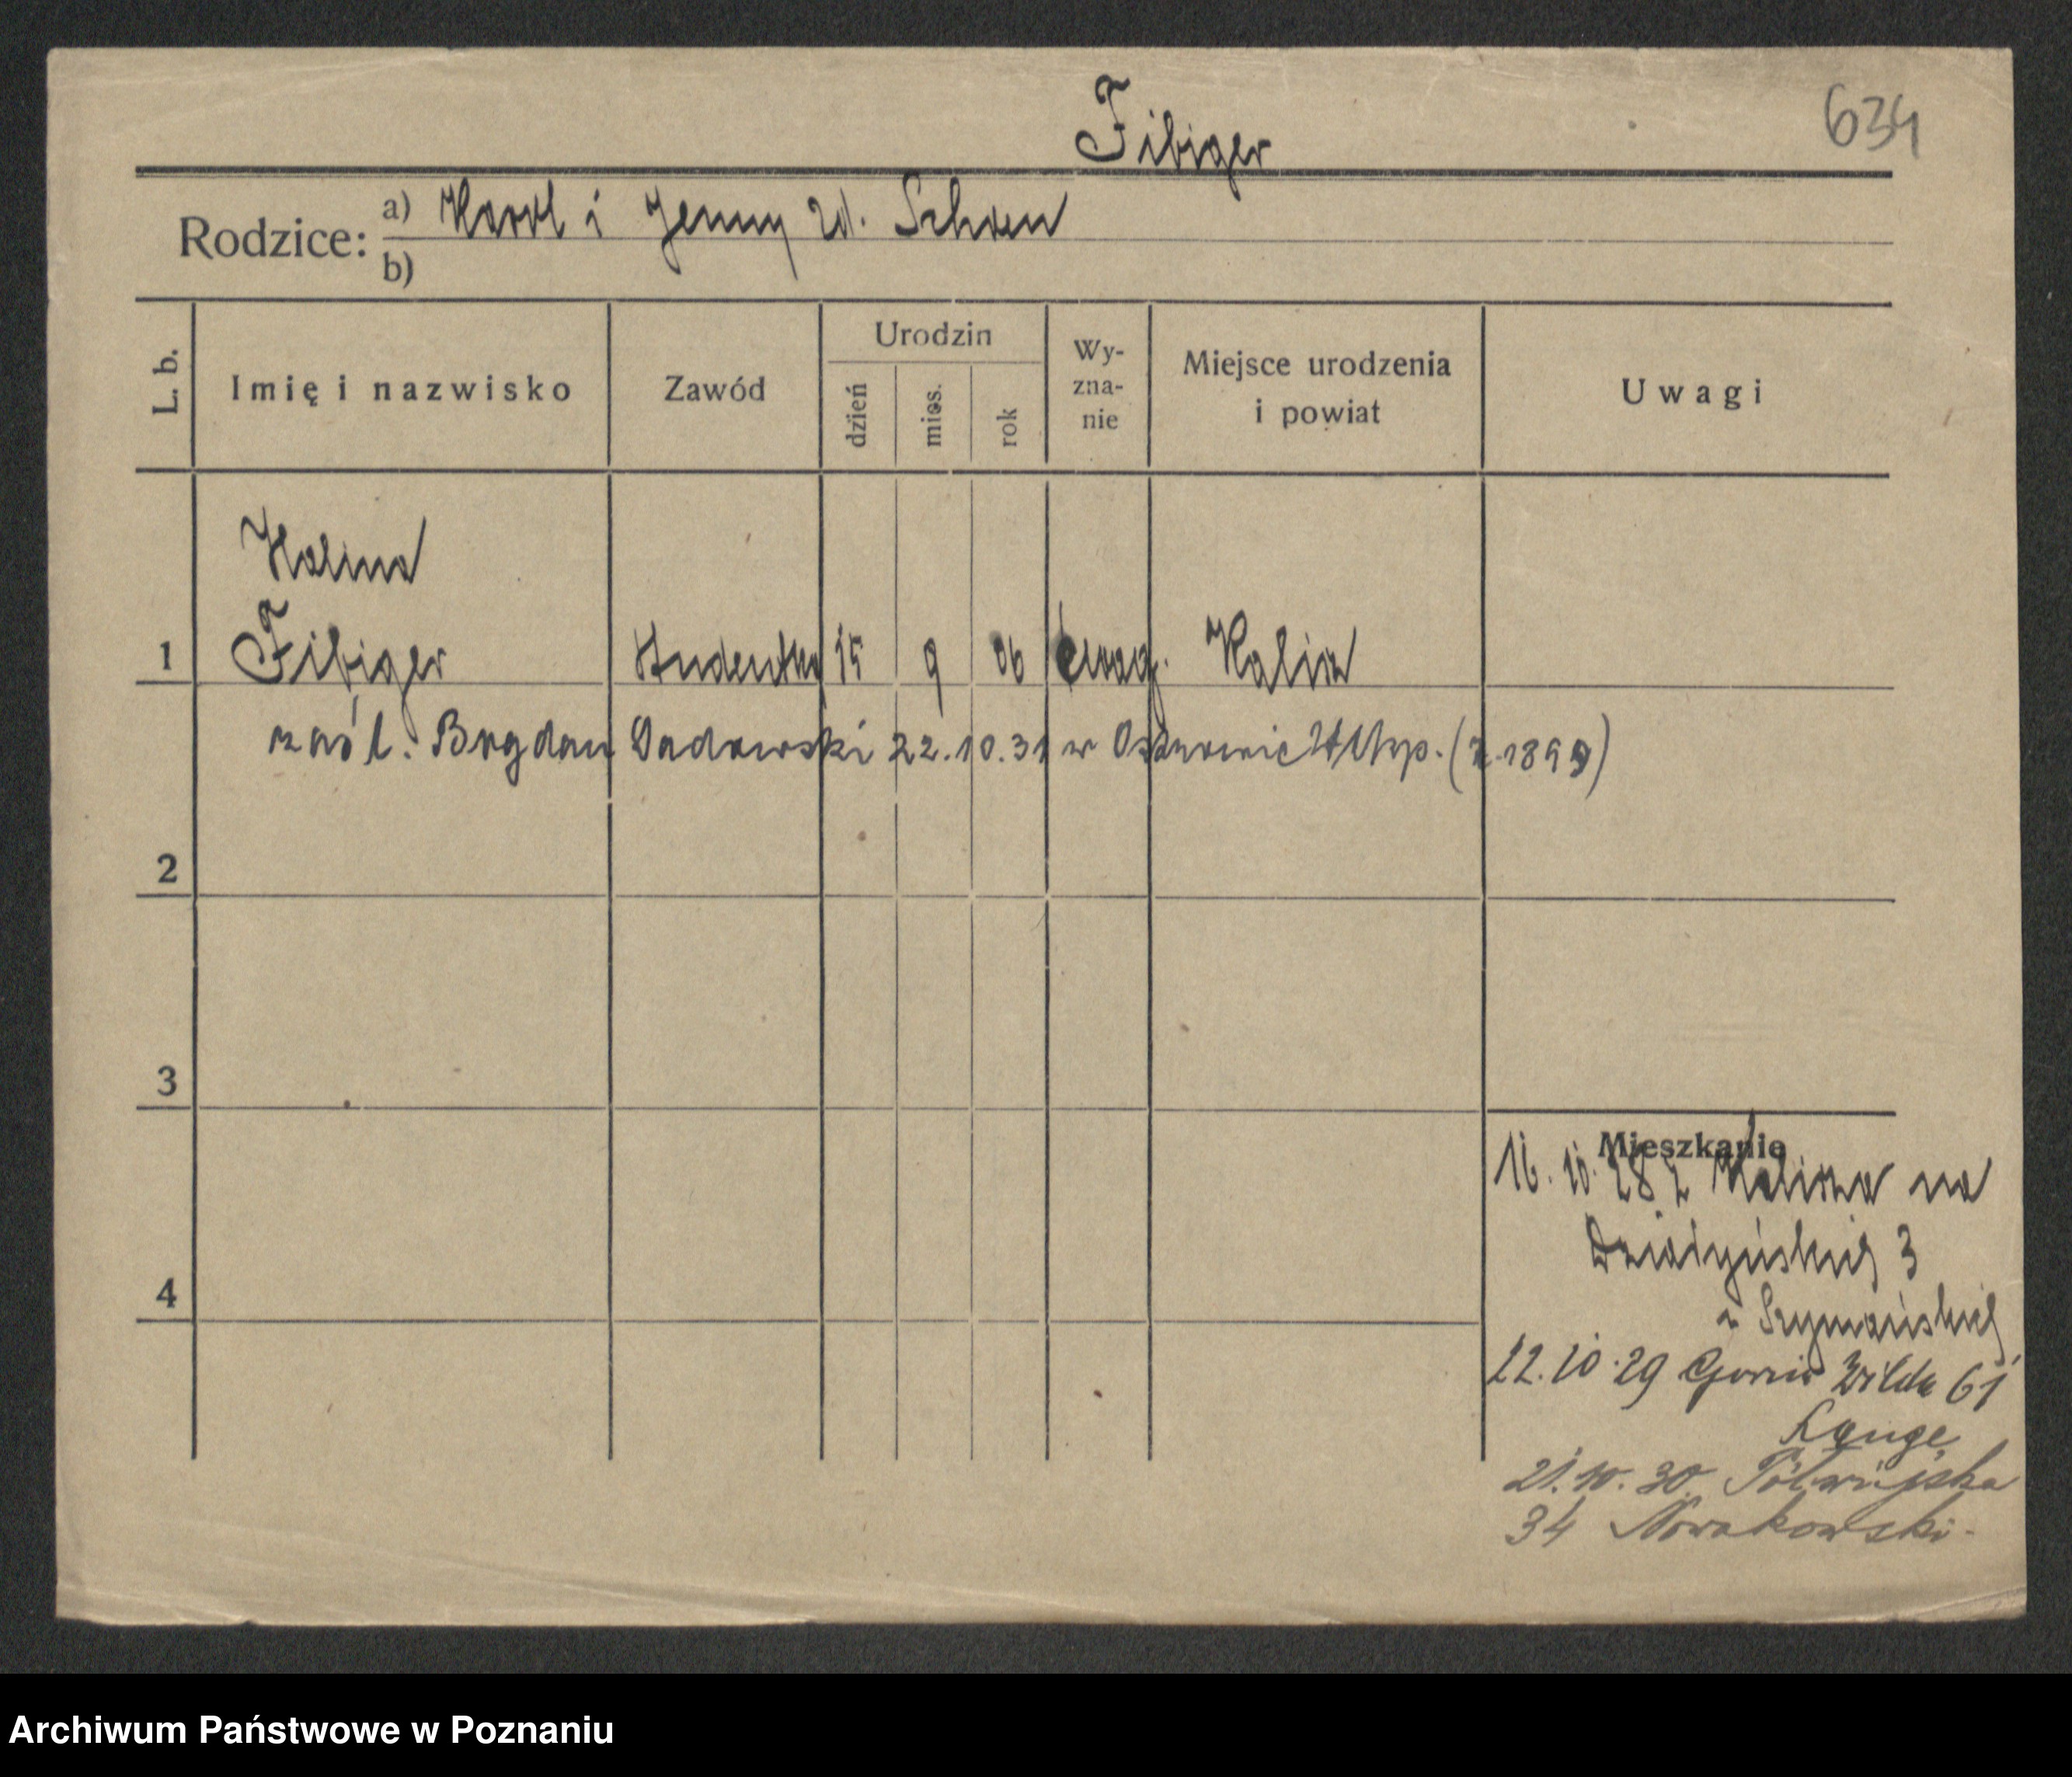 Fibiger
634
Rodzice: a) Karol i Jenny zd. Schoen
b)
L. b. Imię i nazwisko Zawód Urodzin dzień mies. rok Wy-zna-nie Miejsce urodzenia i powiat Uwagi
Halina
1 Fibiger Studentka 15 9 06 ewag. Kalisz
zaśl. Bogdan Dadowski 22.10.31 w Ostrowie Wlkp. 1899)
2
3
4
Mieszkanie
16. 10. 28 z Kalisza na
Działyńskiej 3
Szymańskiej
22. 10. 29 Górna Wilda 61
Lange
21. 10. 30. Półwiejska
34 Nowakowski-
Archiwum Państwowe w Poznaniu